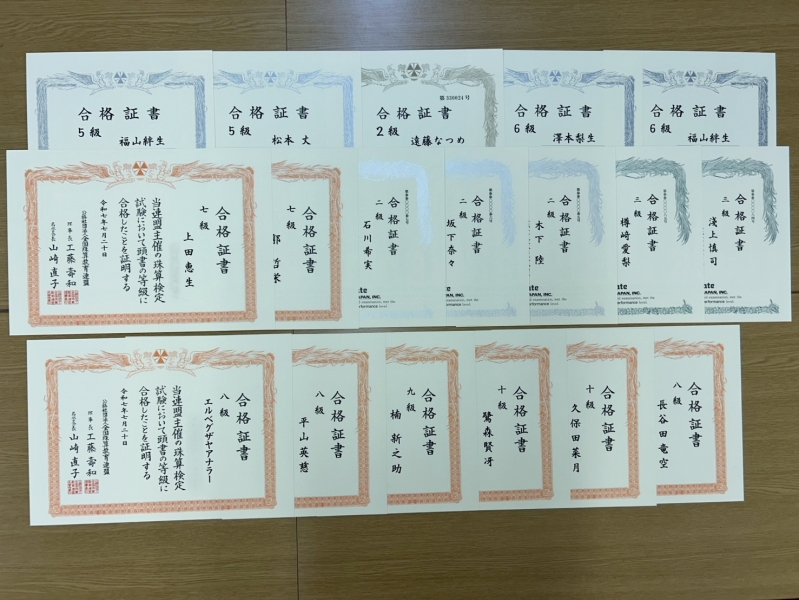 合格証書
5級
福山絆生
合格証書
5級
松本 丈
第330024号
合格証書
2級
遠藤なつめ
合格証書
6級
澤本梨生
合格証書
6級
福山絆生
合格証書
七級
上田恵生
当連盟主催の珠算検定
試験において頭書の等級に
合格したことを証明する
令和七年七月二十日
公益社団法人全国珠算教育連盟
理事長 工藤壽和
山崎直子
合格証書
七級
合格証書
二級
石川希実
合格証書
二級
坂下奈々
合格証書
二級
木下 陸
合格証書
三級
樽崎愛梨
合格証書
三級
淺上慎司
JAPAN, INC.
合格証書
八級
エルベグザヤアナラー
当連盟主催の珠算検定
試験において頭書の等級に
合格したことを証明する
令和七年七月二十日
公益社団法人全国珠算教育連盟
理事長 工藤壽和
山崎直子
合格証書
八級
平山英慈
合格証書
九級
楠 新之助
合格証書
十級
鷺森賢冴
合格証書
十級
久保田菜月
合格証書
八級
長谷田竜空